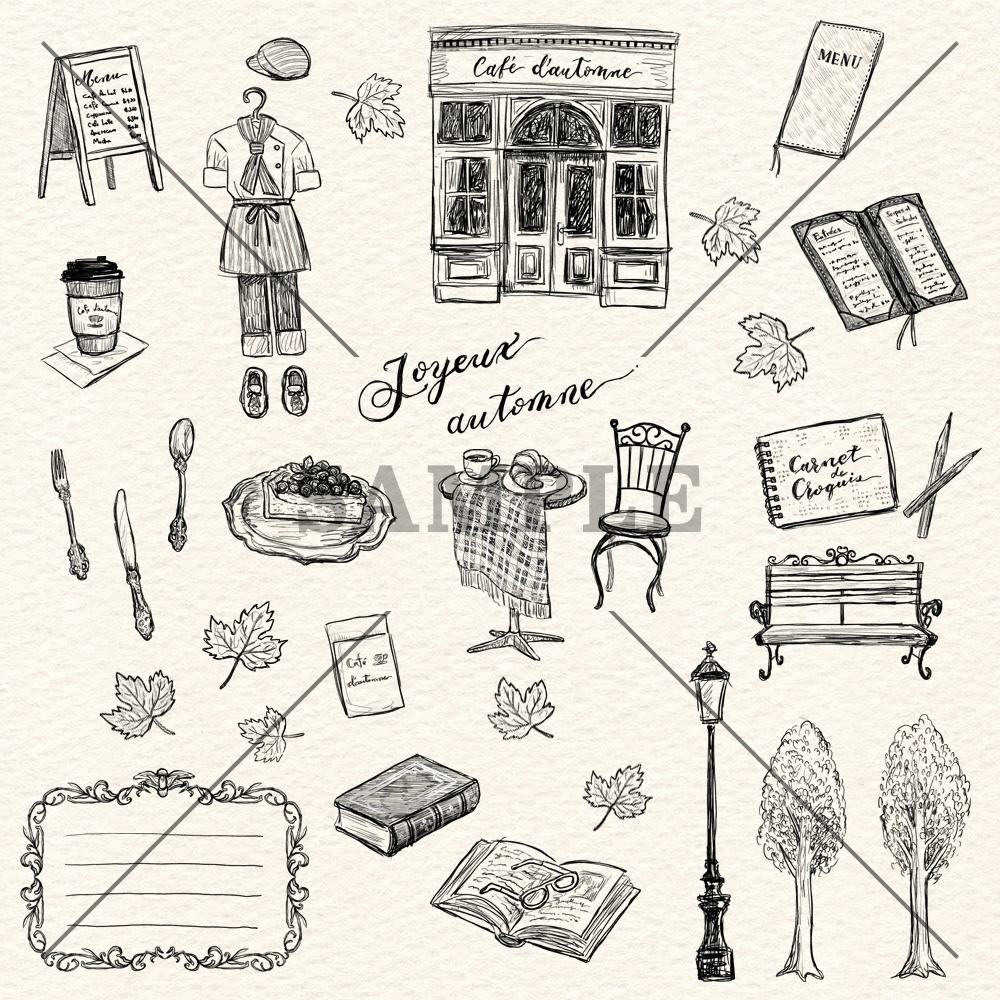 Café d'automne
MENU
Menu
Café au Lait
Café
Cappuccino
Café Latte
Americano
Mocha
Entrées
Soupes et
Salades
Café d'automne
Joyeux
automne
Carnet
de
Croquis
SAMPLE
Café
d'automne